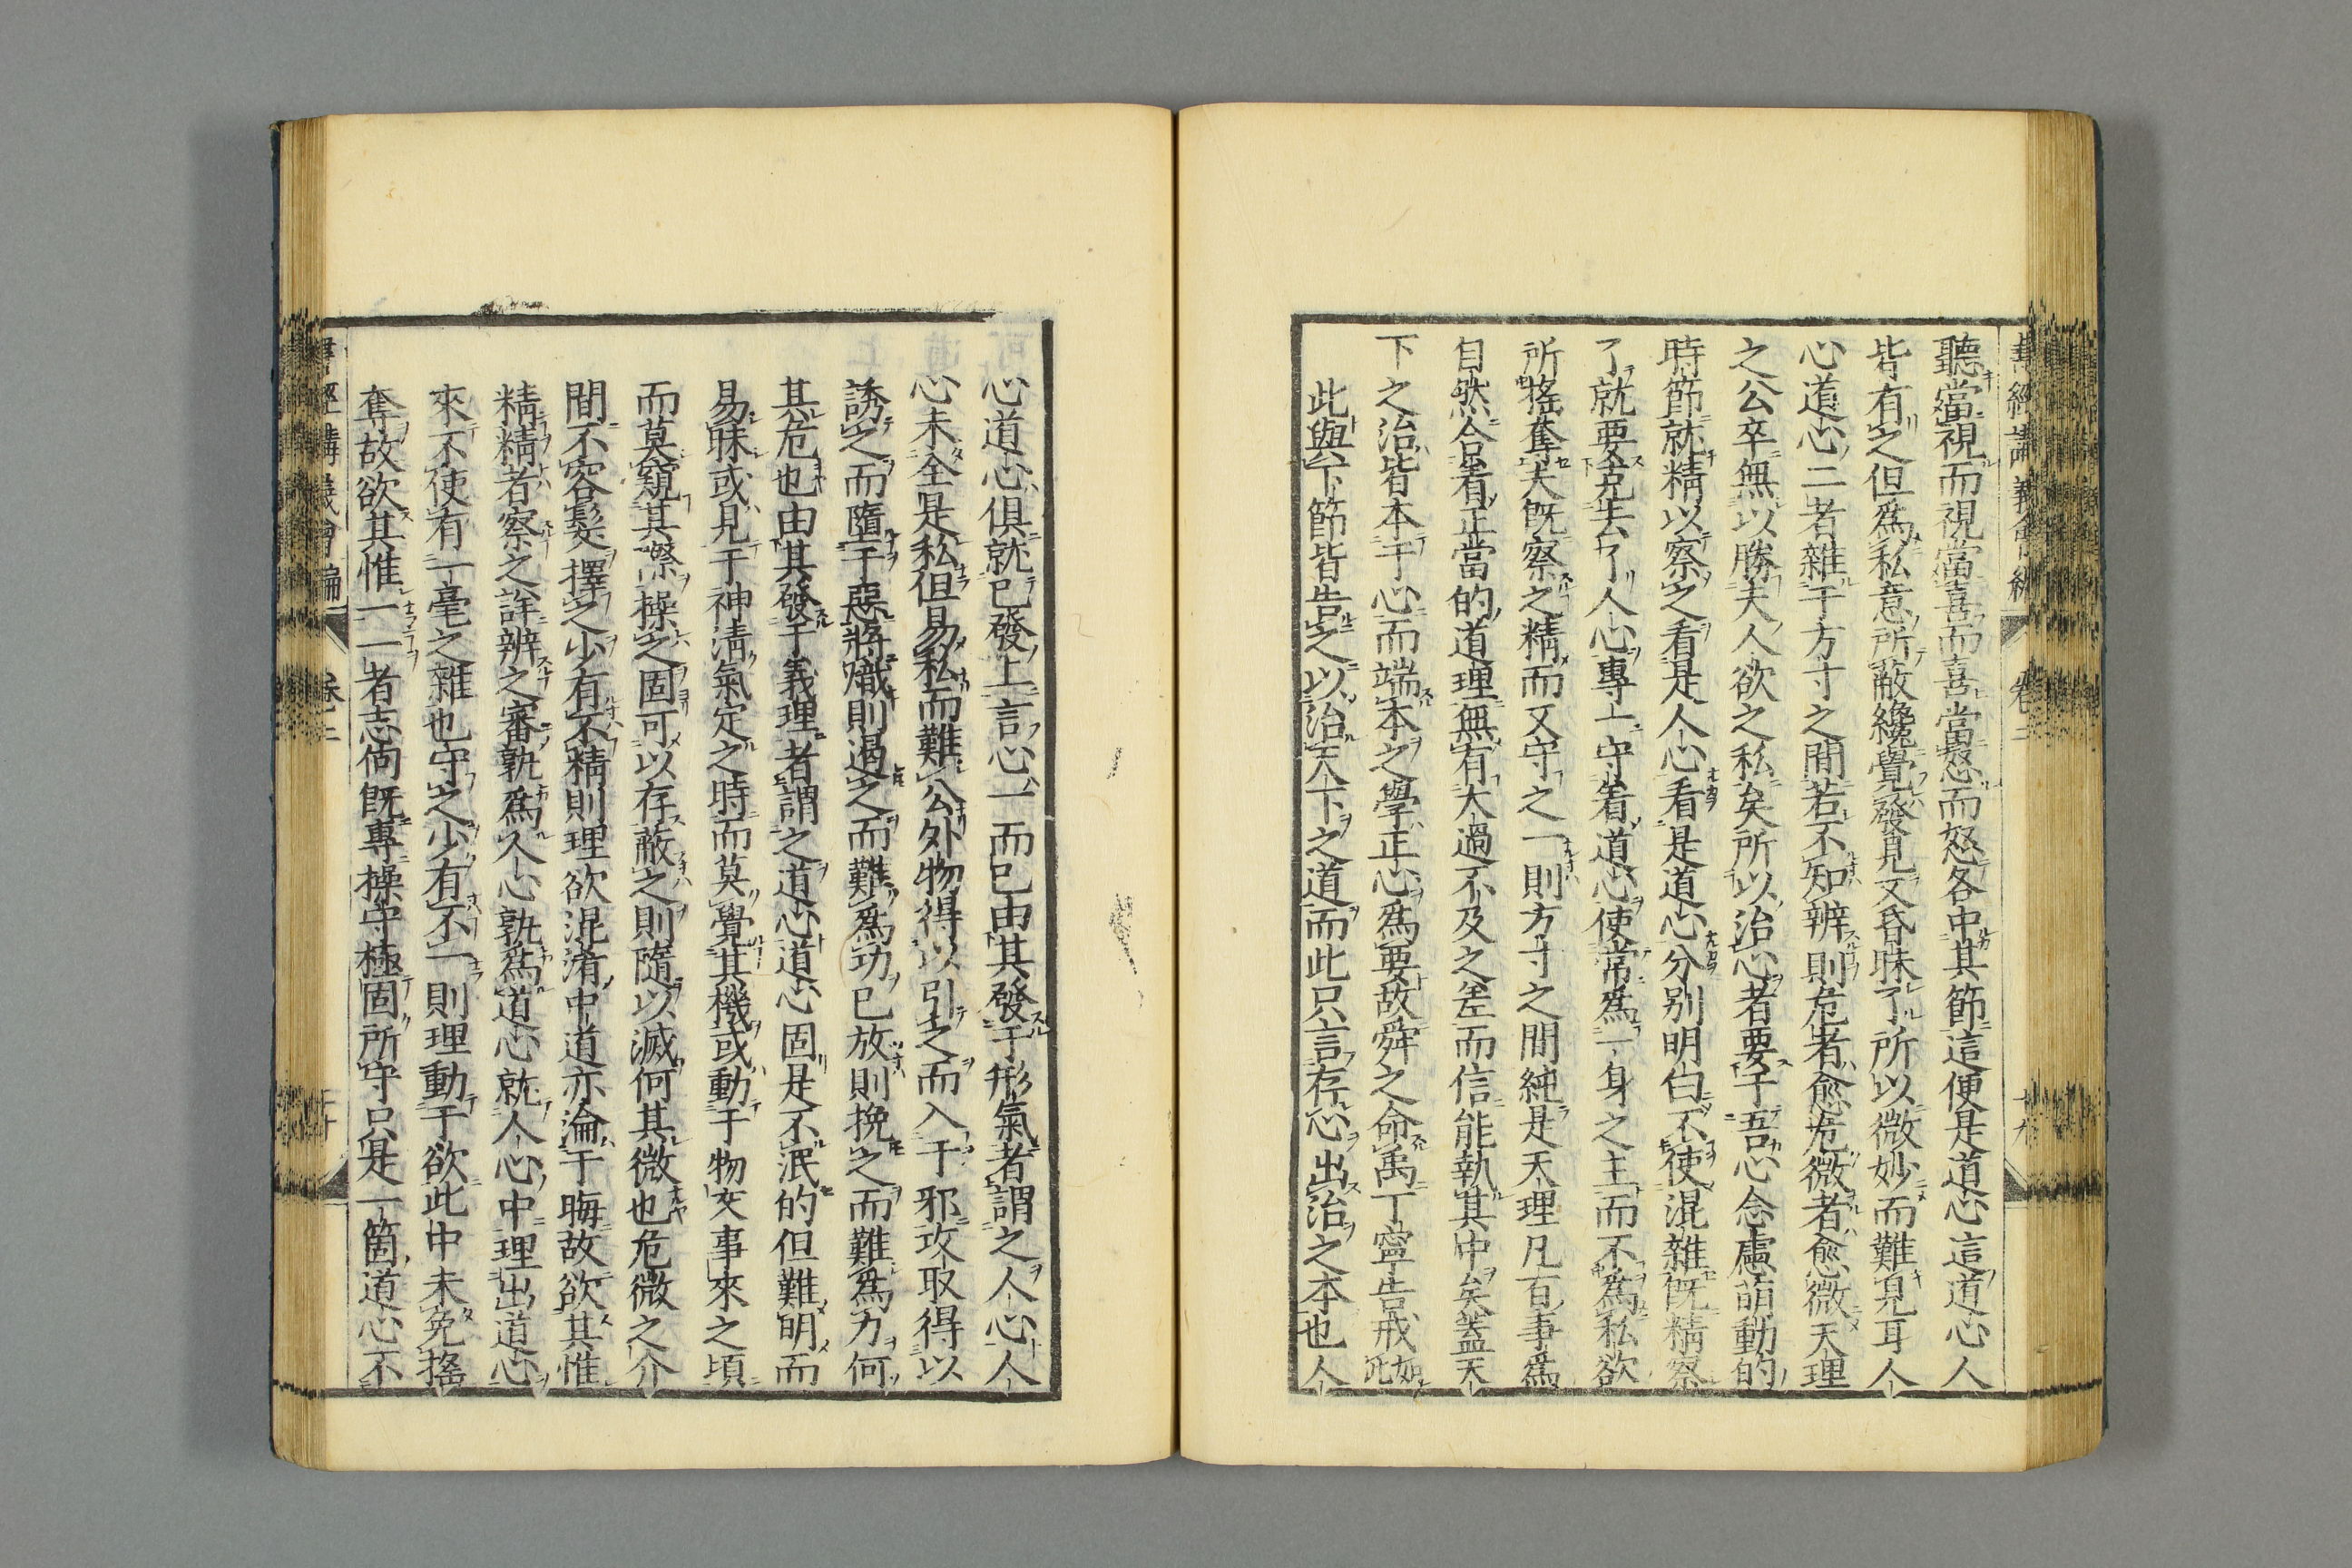 聽當視而視當喜而喜當怒而怒各中其節這便是道心這道心人
皆有之但爲私意所蔽纔覺發見又昏昧了所以微妙而難見耳人
心道心二者雜于方寸之間若不知辨則危者愈危微者愈微天理
之公卒無以勝夫人欲之私矣所以治心者要于吾心念慮萌動的
時節就精以察之看是人心看是道心分别明白不使混雜既精察
了就要克去了人心專一守着道心使常爲一身之主而不爲私欲
所搖奪夫既察之精而又守之一則方寸之間純是天理凡百事爲
自然合着正當的道理無有太過不及之差而信能執其中矣蓋天
下之治皆本于心而端本之學正心爲要故舜之命禹丁寧告戒如此
此與下節皆告之以治天下之道而此只言存心出治之本也人
心道心俱就已發上言心一而已由其發于形氣者謂之人心人
心未全是私但易私而難公外物得以引之而入于邪攻取得以
誘之而墮于惡將熾則遏之而難爲功已放則挽之而難爲力何
其危也由其發于義理者謂之道心道心固是不泯的但難明而
易昧或見于神清氣定之時而莫覺其機或動于物交事來之頃
而莫窺其際操之固可以存蔽之則隨以滅何其微也危微之介
間不容髮擇之少有不精則理欲混淆中道亦淪于晦故欲其惟
精精者察之詳辨之審孰爲人心孰爲道心就人心中理出道心
來不使有一毫之雜也守之少有不一則理動于欲此中未免搖
奪故欲其惟一一者志向既專操守極固所守只是一箇道心不
書經講義會編
卷二